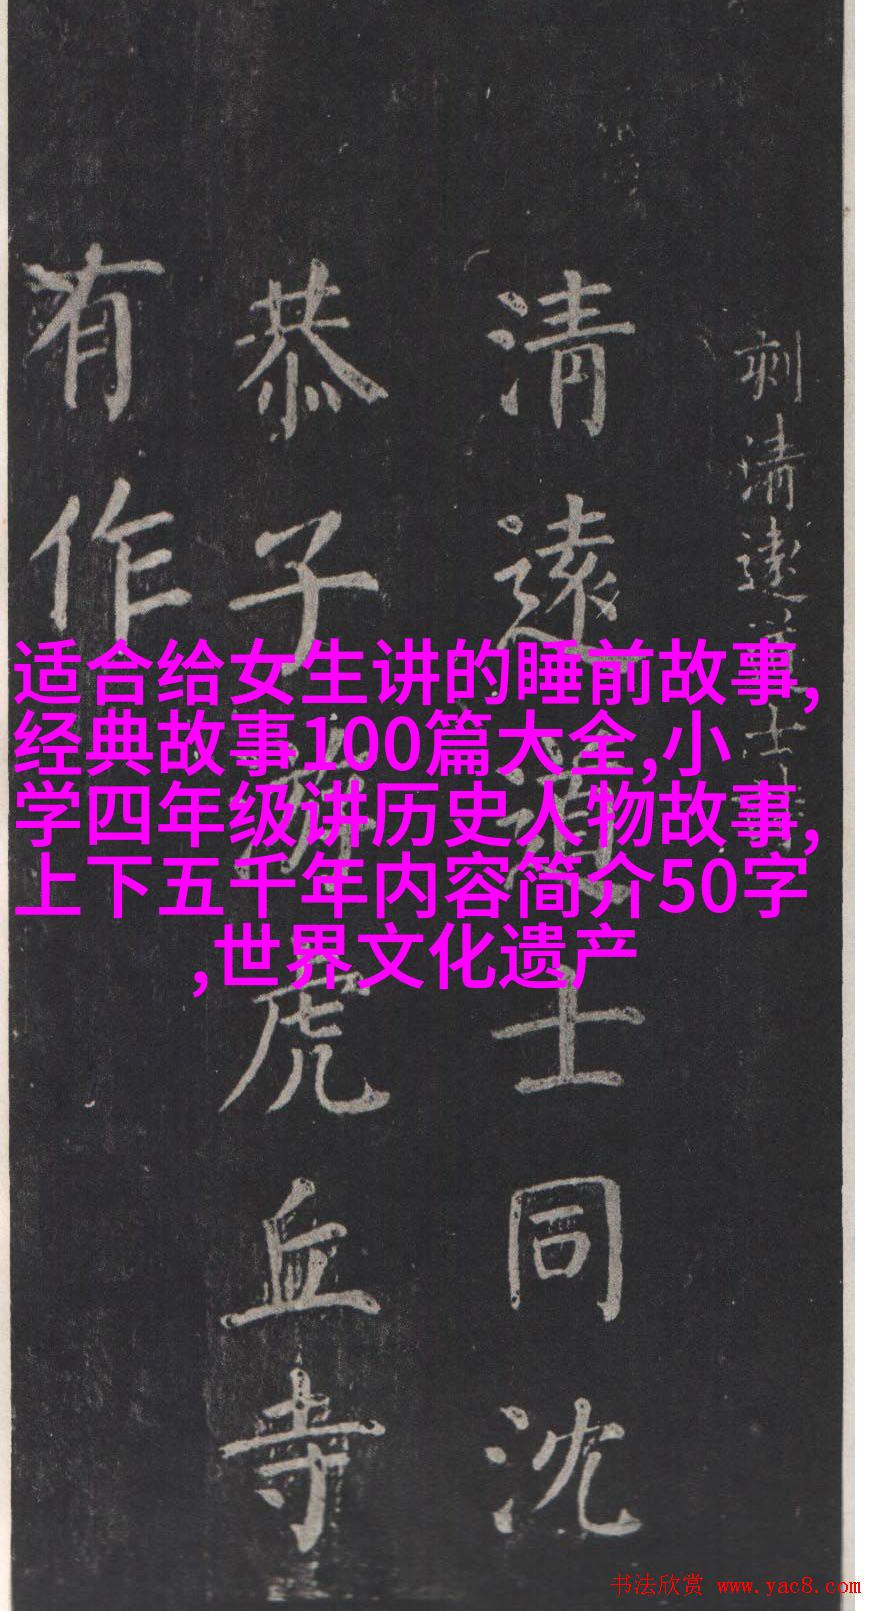 刻清遠道士詩
清遠道士同沈
恭子游虎丘寺
有作
适合给女生讲的睡前故事,
经典故事100篇大全,小
学四年级讲历史人物故事,
上下五千年内容简介50字
,世界文化遗产
书法欣赏 www.yac8.com